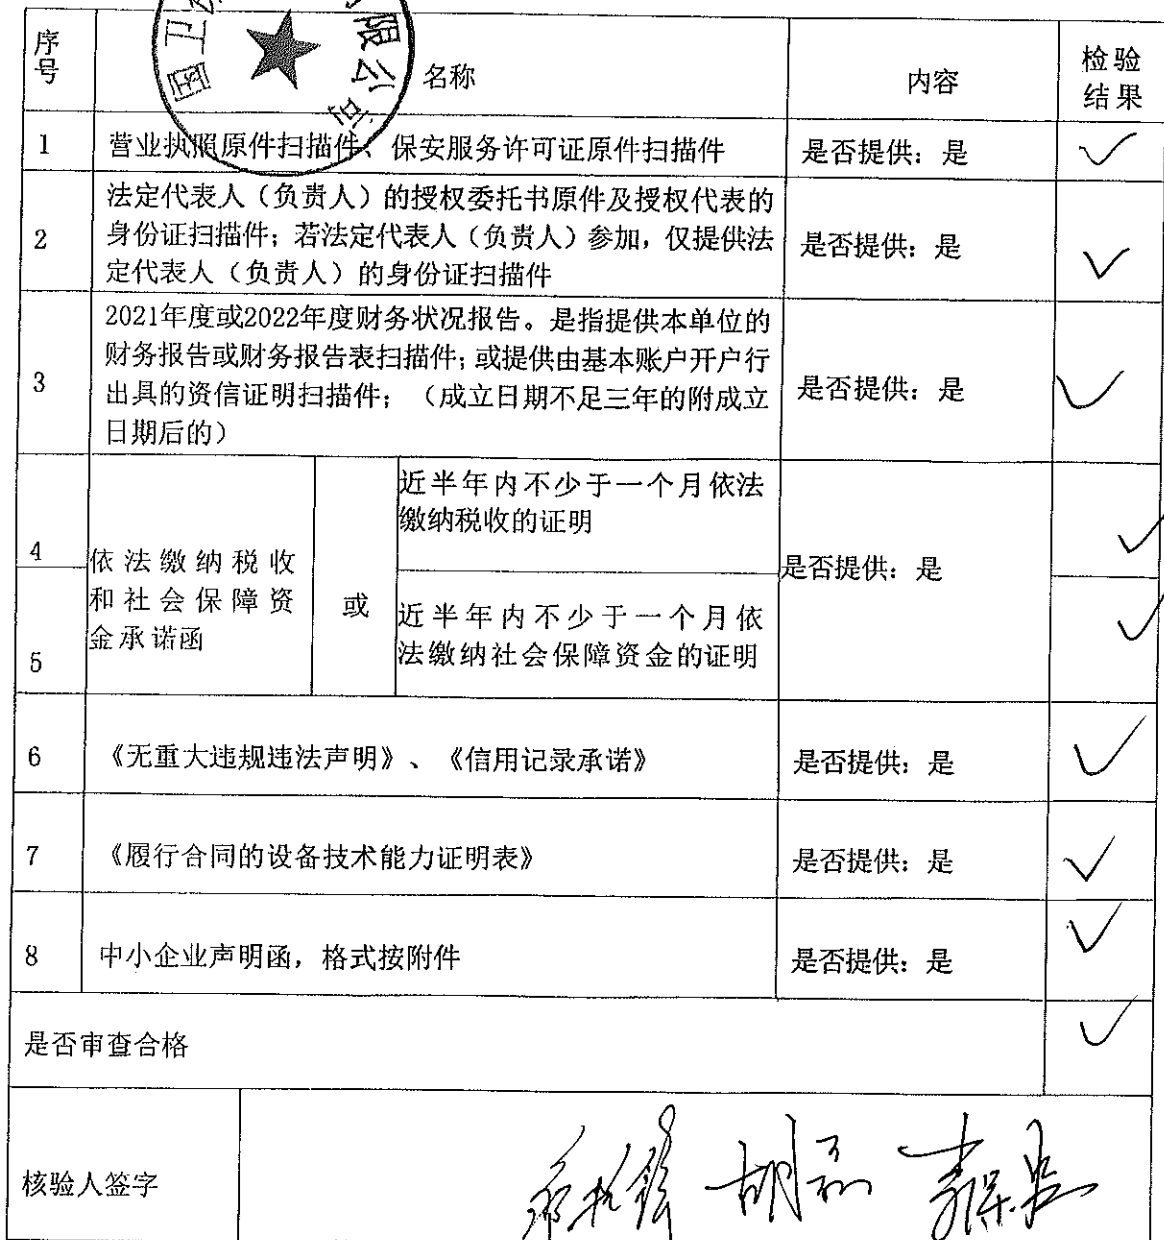 国卫
限公司
序号
名称
内容
检验
结果
1
营业执照原件扫描件、保安服务许可证原件扫描件
是否提供：是
✓
2
法定代表人（负责人）的授权委托书原件及授权代表的
身份证扫描件；若法定代表人（负责人）参加，仅提供法
定代表人（负责人）的身份证扫描件
是否提供：是
✓
3
2021年度或2022年度财务状况报告。是指提供本单位的
财务报告或财务报告表扫描件；或提供由基本账户开户行
出具的资信证明扫描件；（成立日期不足三年的附成立
日期后的）
是否提供：是
✓
4
依法缴纳税收
和社会保障资
金承诺函
或
近半年内不少于一个月依法
缴纳税收的证明
是否提供：是
✓
5
近半年内不少于一个月依
法缴纳社会保障资金的证明
✓
6
《无重大违规违法声明》、《信用记录承诺》
是否提供：是
✓
7
《履行合同的设备技术能力证明表》
是否提供：是
✓
8
中小企业声明函，格式按附件
是否提供：是
✓
是否审查合格
✓
核验人签字